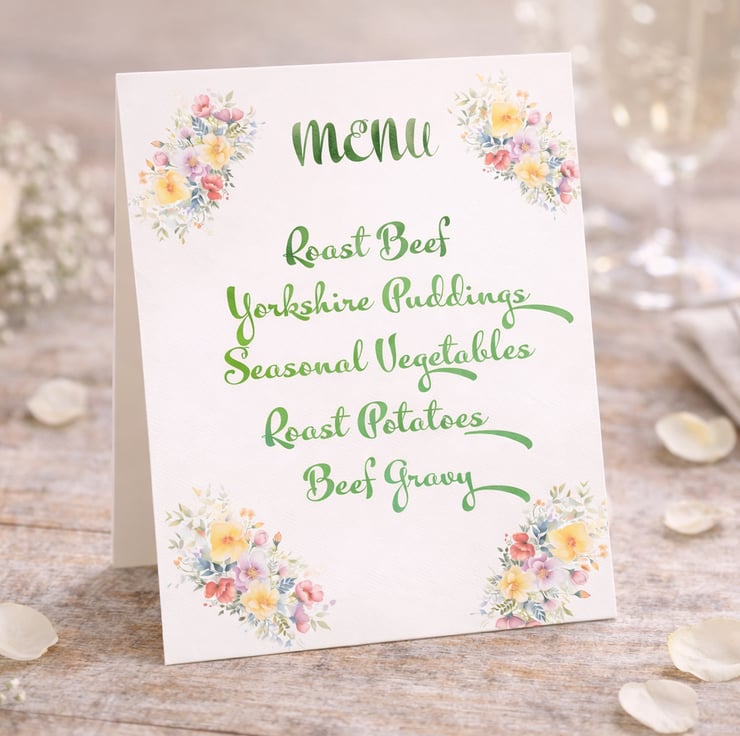 MENU
Roast Beef
Yorkshire Puddings
Seasonal Vegetables
Roast Potatoes
Beef Gravy